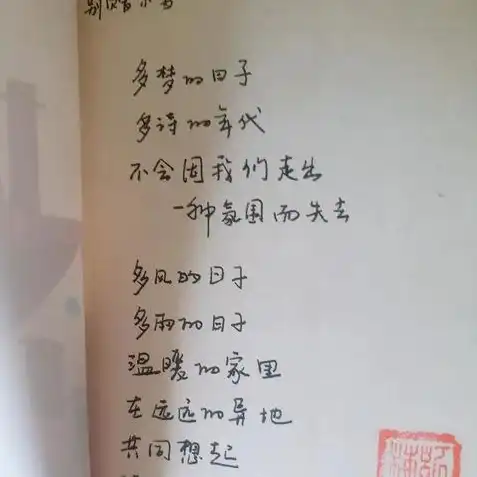 多梦的日子
多诗的年代
不会因我们走出
一种氛围而失去
多风的日子
多雨的日子
温暖的家里
在远远的异地
共同想起